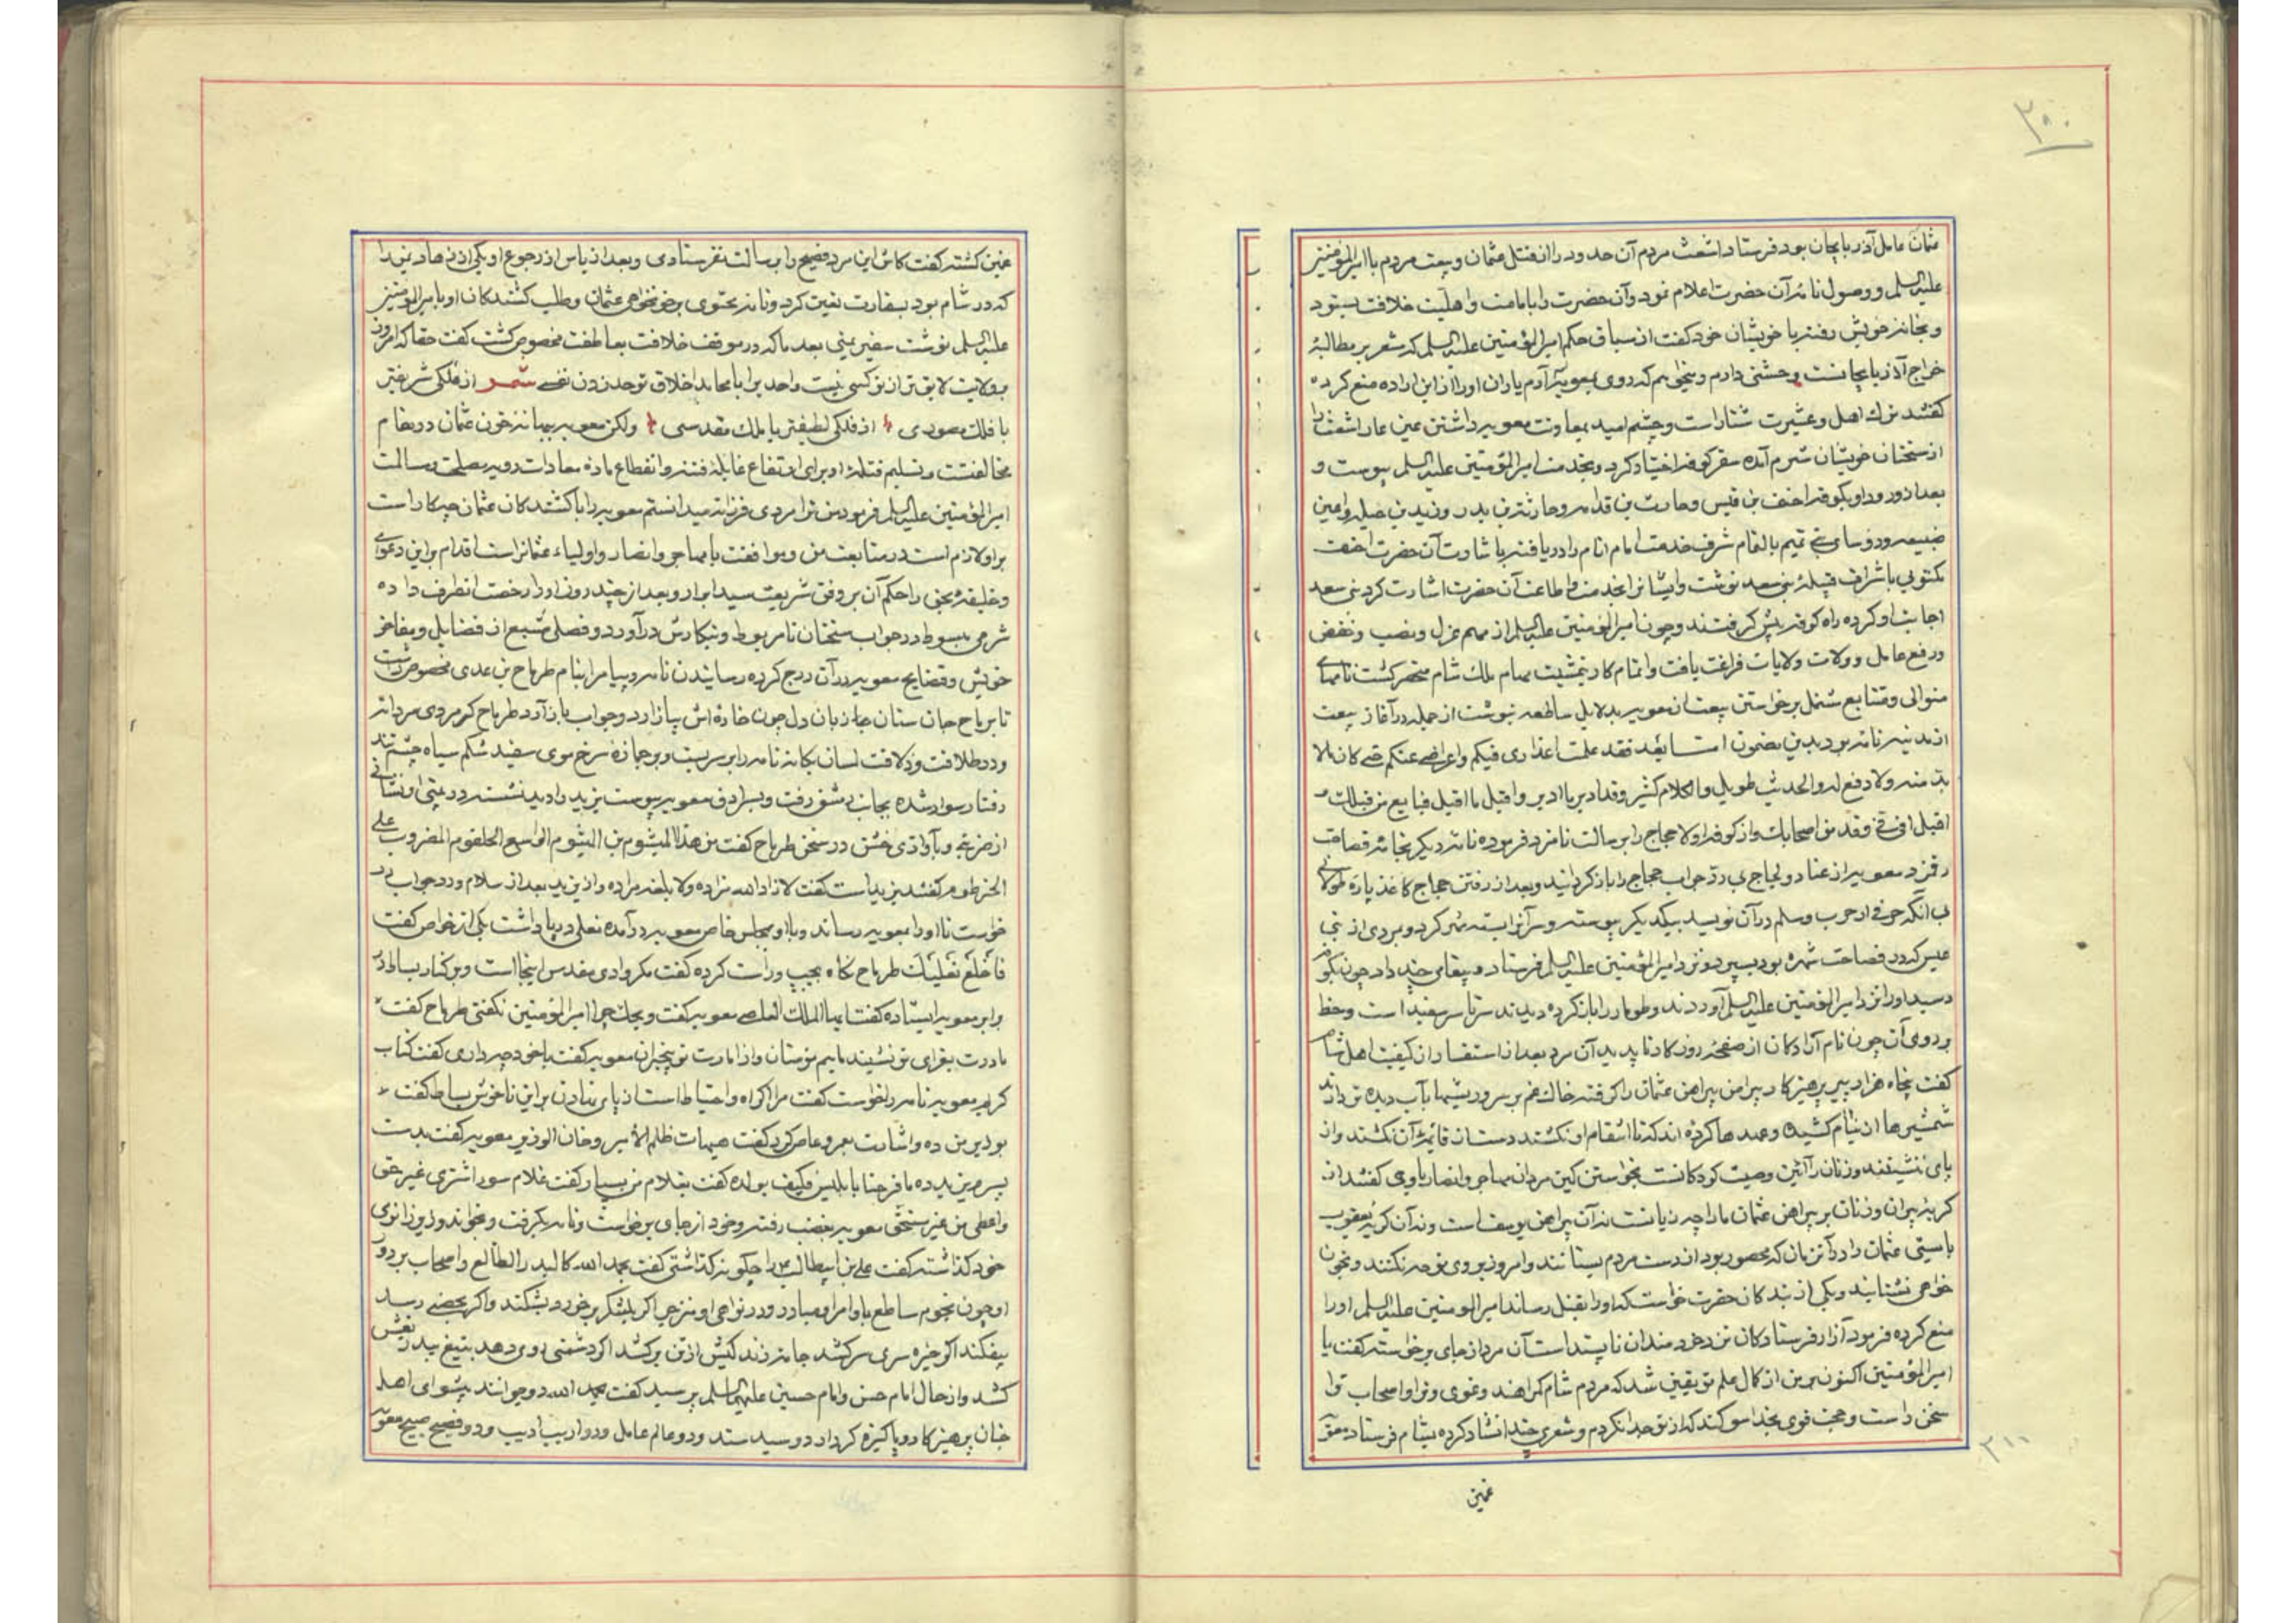 ۳۰۰
عثمان عامل آذربایجان بود فرستاد اشعث مردم آن حدود را از قتل عثمان و بیعت مردم با امیرالمؤمنین
علیه السلم و وصول نامهٔ آن حضرت اعلام نمود و آن حضرت را بامامت و اهلیت خلافت بستود
و بخانهٔ خویش رفته با خویشان خود گفت از سیاق حکم امیرالمؤمنین علیه السلم که مشعر بر مطالبهٔ
خراج آذربایجانست وحشتی دارم و میخواهم که روی بمعویه آرم یاران او را از این اراده منع کرده
گفتند ترک اهل و عشیرت شنار است و چشم امید بمعاونت معویه داشتن عین عار اشعث را
از سخنان خویشان شرم آمده سفر کوفه اختیار کرد و بخدمت امیرالمؤمنین علیه السلم پیوست و
بعد از ورود او بکوفه احنف بن قیس و حارث بن قدامه و حارثة بن بدر و زید بن جبله و اعین
ضبیعه و رؤسای بنی تمیم بالتمام شرف خدمت امام انام را دریافته باشارت آن حضرت احنف
مکتوبی باشراف قبیلهٔ بنی سعد نوشت و ایشانرا بخدمت و اطاعت آن حضرت اشارت کرد بنی سعد
اجابت او کرده راه کوفه پیش گرفتند و چون امیرالمؤمنین علیه السلم از مهم عزل و نصب و خفض
و رفع عامل و ولات ولایات فراغت یافت و اتمام کار بتمشیت مهام ملک شام منحصر گشت نامهای
متوالی و متتابع مشتمل بر خواستن بیعت از معویه بدلایل ساطعه نوشت از جمله در آغاز بیعت
از مدینه نامه بود بدین مضمون اما بعد فقد علمت اعذاری فیکم و اعراضی عنکم حتی کان مالا
بد منه ولا دفع له والحدیث طویل والکلام کثیر وقد ادبر ما ادبر و اقبل ما اقبل فبایع من قبلک و
اقبل الی فی وفد من اصحابک و از کوفه اولا حجاج را برسالت نامزد فرموده نامه دیگر
رفت و معویه از عناد و لجاج بی رد جواب حجاج را باز گردانید و بعد از رفتن حجاج کاغذ پارهٔ طولانی
بی آنکه حرفی از حرب و سلم در آن نویسد بیکدیگر پیوسته و سر آنرا بسته مهر کرد و مردی از بنی
عبس که در فصاحت شهره بود سپرد و نزد امیرالمؤمنین علیه السلم فرستاد و پیغامی چند داد چون بکوفه
رسید او را نزد امیرالمؤمنین علیه السلم آوردند و طومار را باز کرده دیدند سرتاسر سفید است و خط
بر روی آن چون نام آزادگان از صفحهٔ روزگار ناپدید آن مرد بعد از استفسار از کیفیت اهل شام
گفت پنجاه هزار پیر پرهیزکار پیرامن پیراهن عثمان را گرفته خاک غم بر سر و ریشها بآب دیده تر دارند
شمشیرها از نیام کشیده و عهدها کرده اند که تا انتقام او نکشند دستان قایمهٔ آن نکشند و از
پای ننشینند و زنان را آئین وصیت کودکانست بخواستن کین مردان مهاجر و انصار با وی گفتند از
گریهٔ پیران و زنان بر پیراهن عثمان ما را چه زیانست نه آن پیراهن یوسف است و نه آن گریه یعقوب
بایستی عثمان را در آن زمان که محصور بود از دست مردم بستانند و امروز بر وی نوحه نکنند و بخون
خواهی نشتابند و یکی از بندگان حضرت خواست که او را بقتل رساند امیرالمومنین علیه السلم او را
منع کرده فرمود آزار فرستادگان نزد خردمندان ناپسند است آن مرد از جای برخواسته گفت یا
امیرالمؤمنین اکنون بر من از کمال علم تو یقین شد که مردم شام گمراهند و غوی و تو او اصحاب ترا
سخن راست و حجت قوی بخدا سوگند که از تو جدا نگردم و شعری چند انشاد کرده بشام فرستاد معویه
غمین
۳۱۱
غمین گشته گفت کاش این مرد فصیح را برسالت نفرستادمی و بعد از یاس از رجوع او یکی از زهاد یمن را
که در شام بود بسفارت تعیین کرد و نامه محتوی بر خونخواهی عثمان و طلب کشندگان او بامیرالمومنین
علیه السلم نوشت سفیر یمنی بعد ما که در موقف خلافت بعاطفت مخصوص گشت گفت حقا که امروز
بولایت لایق تر از تو کسی نیست واحدیرا بامحامد اخلاق تو حد زدن نفسی شعر از فلکی شریفتر
یا فلک مصوری از فلکی لطیفتر یا ملک مقدسی ولکن معویه ببهانهٔ خون عثمان در مقام
مخالفتست و تسلیم قتلهٔ او برای ارتفاع غایلهٔ فتنه و انقطاع مادهٔ معادات رویهٔ مصلحت و سالمت
امیرالمؤمنین علیه السلم فرمود من ترا مردی فرزانه میدانستم معویه را با کشندگان عثمان چکار است
بر او لازم است در متابعت من و موافقت با مهاجر و انصار و اولیاء عثمانراست اقدام بر این دعوای
و خلیفهٔ بحق را حکم آن بر وفق شریعت سید ابرار و بعد از چند روز او را رخصت انطرف داده
شرحی مبسوط در جواب سخنان نامربوط و بنگارش درآورد و فصلی مشبع از فضایل و مفاخر
خویش و قضایح معویه در آن درج کرده رسانیدن نامه و پیام را بنام طرماح بن عدی مخصوص داشت
تا برماح جان ستان جا زبان دل چون خارهٔ اش بیازارد و جواب باز آرد طرماح که مردی مردانه
و در طلاقت و ذلاقت لسان یگانه نامه را بر سر بست و بر جمازهٔ سرخ موی سفید شکم سیاه چشم تند
رفتار سوار شده بجانب دمشق رفت و بسرادق معویه پیوست یزید را دید نشسته و در بینی او نشانی
از ضربتی و بآوازی خشن در سخن طرماح گفت من هذا المیشوم بن المیشوم الواسع الحلقوم المضروب علی
الخرطوم گفتند یزید است گفت لا زاد الله مزاده ولا بلغه مراده و از یزید بعد از سلام و رد جواب
خواست تا او را بمعویه رساند و با او بمجلس خاص معویه درآمده نعلی در پا داشت یکی از خواص گفت
فاخلع نعلیک طرماح نگاه بچپ و راست کرده گفت مگر وادی مقدس اینجا است و بر کنار بساط در
برابر معویه ایستاده گفت ایها الملک العاصی معویه گفت ویحک چرا امیرالمؤمنین نگفتی طرماح گفت
مادرت بعزای تو نشیند مائیم مؤمنان و از امارت تو بیخبران معویه گفت با خود چه داری گفت کتاب
کریم معویه نامه را خواست گفت مرا اکراه و احتیاط است از پای نهادن بر این ناخوش بساط گفت
بوزیر من ده و اشارت بعمرو عاص کرد گفت هیهات ظلم الامیر و خان الوزیر معویه گفت بدست
پسرم یزید ده ما فرحنا بابلیس فکیف بولده گفت بغلام من بسپار گفت غلام سوء اشتری غیر حق
واعطی من غیر مستحق معویه بغضب رفته و خود از جای برخواست و نامه بگرفت و بخواند و زیر زانوی
خود گذاشته گفت علی بن ابیطالب را چگونه گذاشتی گفت بحمد الله کالبدر الطالع و اصحاب بر دور
او چون نجوم ساطع باوامر او مبادر و در نواهی او منزجر اگر بلشگر برخورد بشکند و اگر بحصنی رسد
بیفکند اگر خیره سری سر کشد جامه زندگیش از تن برکشد اگر دشمنی روی دهد بتیغ بیدریغش
کشد و از حال امام حسن و امام حسین علیهما السلم پرسید گفت بحمد الله دو جوانند پیشوای اهل
جنان پرهیزکار و پاکیزه کردار دو سید سند و دو عالم عامل و دو ادیب اریب و دو فصیح صبیح معویه